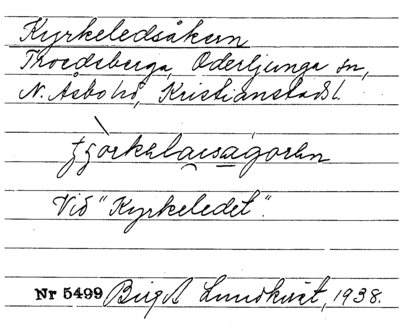 Kyrkeledsåkern
Troedsberga, Oderljunga sn,
N. Åsbo hd, Kristianstads l.
Vid "Kyrkeledet".
Nr 5499 Birgit Lundkvist, 1938.